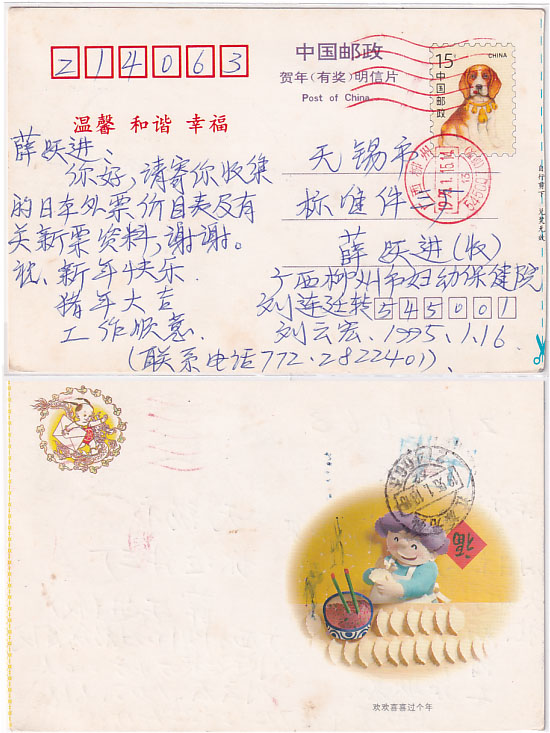 214063
中国邮政
贺年(有奖)明信片
Post of China
15分
CHINA
中国邮政
温馨 和谐 幸福
薛跃进:
你好,请寄你收集
的日本外票价目表及有
关新票资料,谢谢。
祝:新年快乐
猪年大吉
工作顺意.
无锡市
标准件厂
薛跃进(收)
广西柳州市妇幼保健院
刘连廷转545001
刘云宏.1995.1.16.
(联系电话772·2822401)、
自行剪下 兑奖无效
福
欢欢喜喜过个年